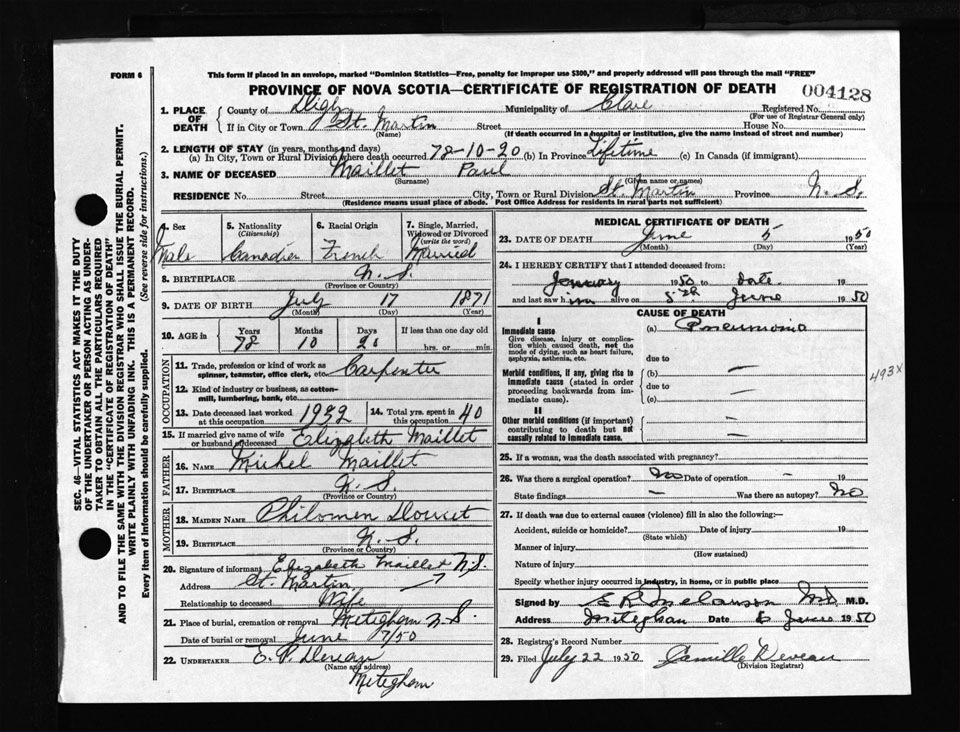 FORM 6
This form if placed in an envelope, marked "Dominion Statistics—Free, penalty for improper use $300," and properly addressed will pass through the mail "FREE"
PROVINCE OF NOVA SCOTIA—CERTIFICATE OF REGISTRATION OF DEATH
004128
1. PLACE OF DEATH
County of Digby Municipality of Clare Registered No.
(For use of Registrar General only)
If in City or Town St. Martin Street House No.
(Name) (If death occurred in a hospital or institution, give the name instead of street and number)
2. LENGTH OF STAY (in years, months and days)
(a) In City, Town or Rural Division where death occurred 78-10-20 (b) In Province Lifetime (c) In Canada (if immigrant)
3. NAME OF DECEASED Maillet Paul
(Surname) (Given name or names)
RESIDENCE No. Street City, Town or Rural Division St. Martin Province N. S.
(Residence means usual place of abode. Post Office Address for residents in rural parts not sufficient)
4. Sex
Male
5. Nationality
(Citizenship)
Canadien
6. Racial Origin
French
7. Single, Married, Widowed or Divorced
(write the word)
Married
8. BIRTHPLACE N. S.
(Province or Country)
9. DATE OF BIRTH July 17 1871
(Month) (Day) (Year)
10. AGE in Years Months Days If less than one day old
78 10 20 hrs. or min.
OCCUPATION
11. Trade, profession or kind of work as spinner, teamster, office clerk, etc. Carpenter
12. Kind of industry or business, as cotton-mill, lumbering, bank, etc.
13. Date deceased last worked at this occupation 1932
14. Total yrs. spent in this occupation 40
15. If married give name of wife or husband of deceased Elizabeth Maillet
FATHER
16. NAME Michel Maillet
17. BIRTHPLACE N. S.
(Province or Country)
MOTHER
18. MAIDEN NAME Philomen Doucet
19. BIRTHPLACE N. S.
(Province or Country)
20. Signature of informant Elizabeth Maillet N.S.
Address St. Martin
Relationship to deceased Wife
21. Place of burial, cremation or removal Meteghan N.S.
Date of burial or removal June 7/50
22. UNDERTAKER E. P. Deveau
(Name and address)
Meteghan
MEDICAL CERTIFICATE OF DEATH
23. DATE OF DEATH June 5 1950
(Month) (Day) (Year)
24. I HEREBY CERTIFY that I attended deceased from:
January 1950 to Date 19
and last saw him alive on June 1950
CAUSE OF DEATH
I
Immediate cause
Give disease, injury or complication which caused death, not the mode of dying, such as heart failure, asphyxia, asthenia, etc.
(a) Pneumonia
due to
Morbid conditions, if any, giving rise to immediate cause (stated in order proceeding backwards from immediate cause).
(b) —
due to
(c) —
493X
II
Other morbid conditions (if important) contributing to death but not causally related to immediate cause.
—
—
25. If a woman, was the death associated with pregnancy?
26. Was there a surgical operation? No Date of operation — 19
State findings — Was there an autopsy? No
27. If death was due to external causes (violence) fill in also the following:—
Accident, suicide or homicide? Date of injury 19
(State which)
Manner of injury
(How sustained)
Nature of injury
Specify whether injury occurred in industry, in home, or in public place
Signed by E R Melanson Md. M.D.
Address Meteghan Date 6 June 1950
28. Registrar's Record Number
29. Filed July 22 1950 Camille Deveau
(Division Registrar)
SEC. 46—VITAL STATISTICS ACT MAKES IT THE DUTY
OF THE UNDERTAKER OR PERSON ACTING AS UNDER-
TAKER TO OBTAIN ALL THE PARTICULARS REQUIRED
IN THE "CERTIFICATE OF REGISTRATION OF DEATH"
AND TO FILE THE SAME WITH THE DIVISION REGISTRAR WHO SHALL ISSUE THE BURIAL PERMIT.
WRITE PLAINLY WITH UNFADING INK. THIS IS A PERMANENT RECORD.
Every item of information should be carefully supplied. (See reverse side for instructions.)